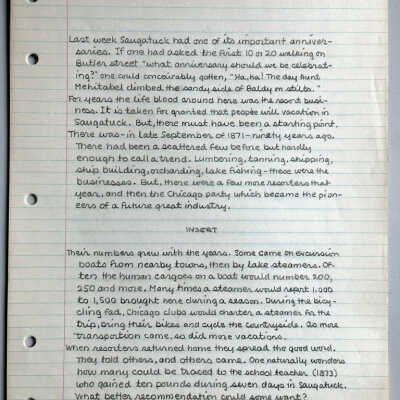 Last week Saugatuck had one of its important anniver-
saries. If one had asked the first 10 or 20 walking on
Butler street "what anniversary should we be celebrat-
ing?" one could conceivably gotten, "Ha, ha! The day Aunt
Mehitabel climbed the sandy side of Baldy on stilts."
For years the life blood around here was the resort busi-
ness. It is taken for granted that people will vacation in
Saugatuck. But, there must have been a starting point.
There was - in late September of 1871 - ninety years ago.
There had been a scattered few before but hardly
enough to call a trend. Lumbering, tanning, shipping,
ship building, orcharding, lake fishing - these were the
businesses. But, there were a few more resorters that
year, and then the Chicago party which became the pion-
eers of a future great industry.
INSERT
Their numbers grew with the years. Some came on excursion
boats from nearby towns, then by lake steamers. Of-
ten the human cargoes on a boat would number 200,
250 and more. Many times a steamer would report 1,000
to 1,500 brought here during a season. During the bicy-
cling fad, Chicago clubs would charter a steamer for the
trip, bring their bikes and cycle the countryside. As more
transportation came, so did more vacations.
When resorters returned home they spread the good word.
They told others, and others came. One naturally wonders
how many could be traced to the school teacher (1873)
who gained ten pounds during seven days in Saugatuck.
What better recommendation could some want?